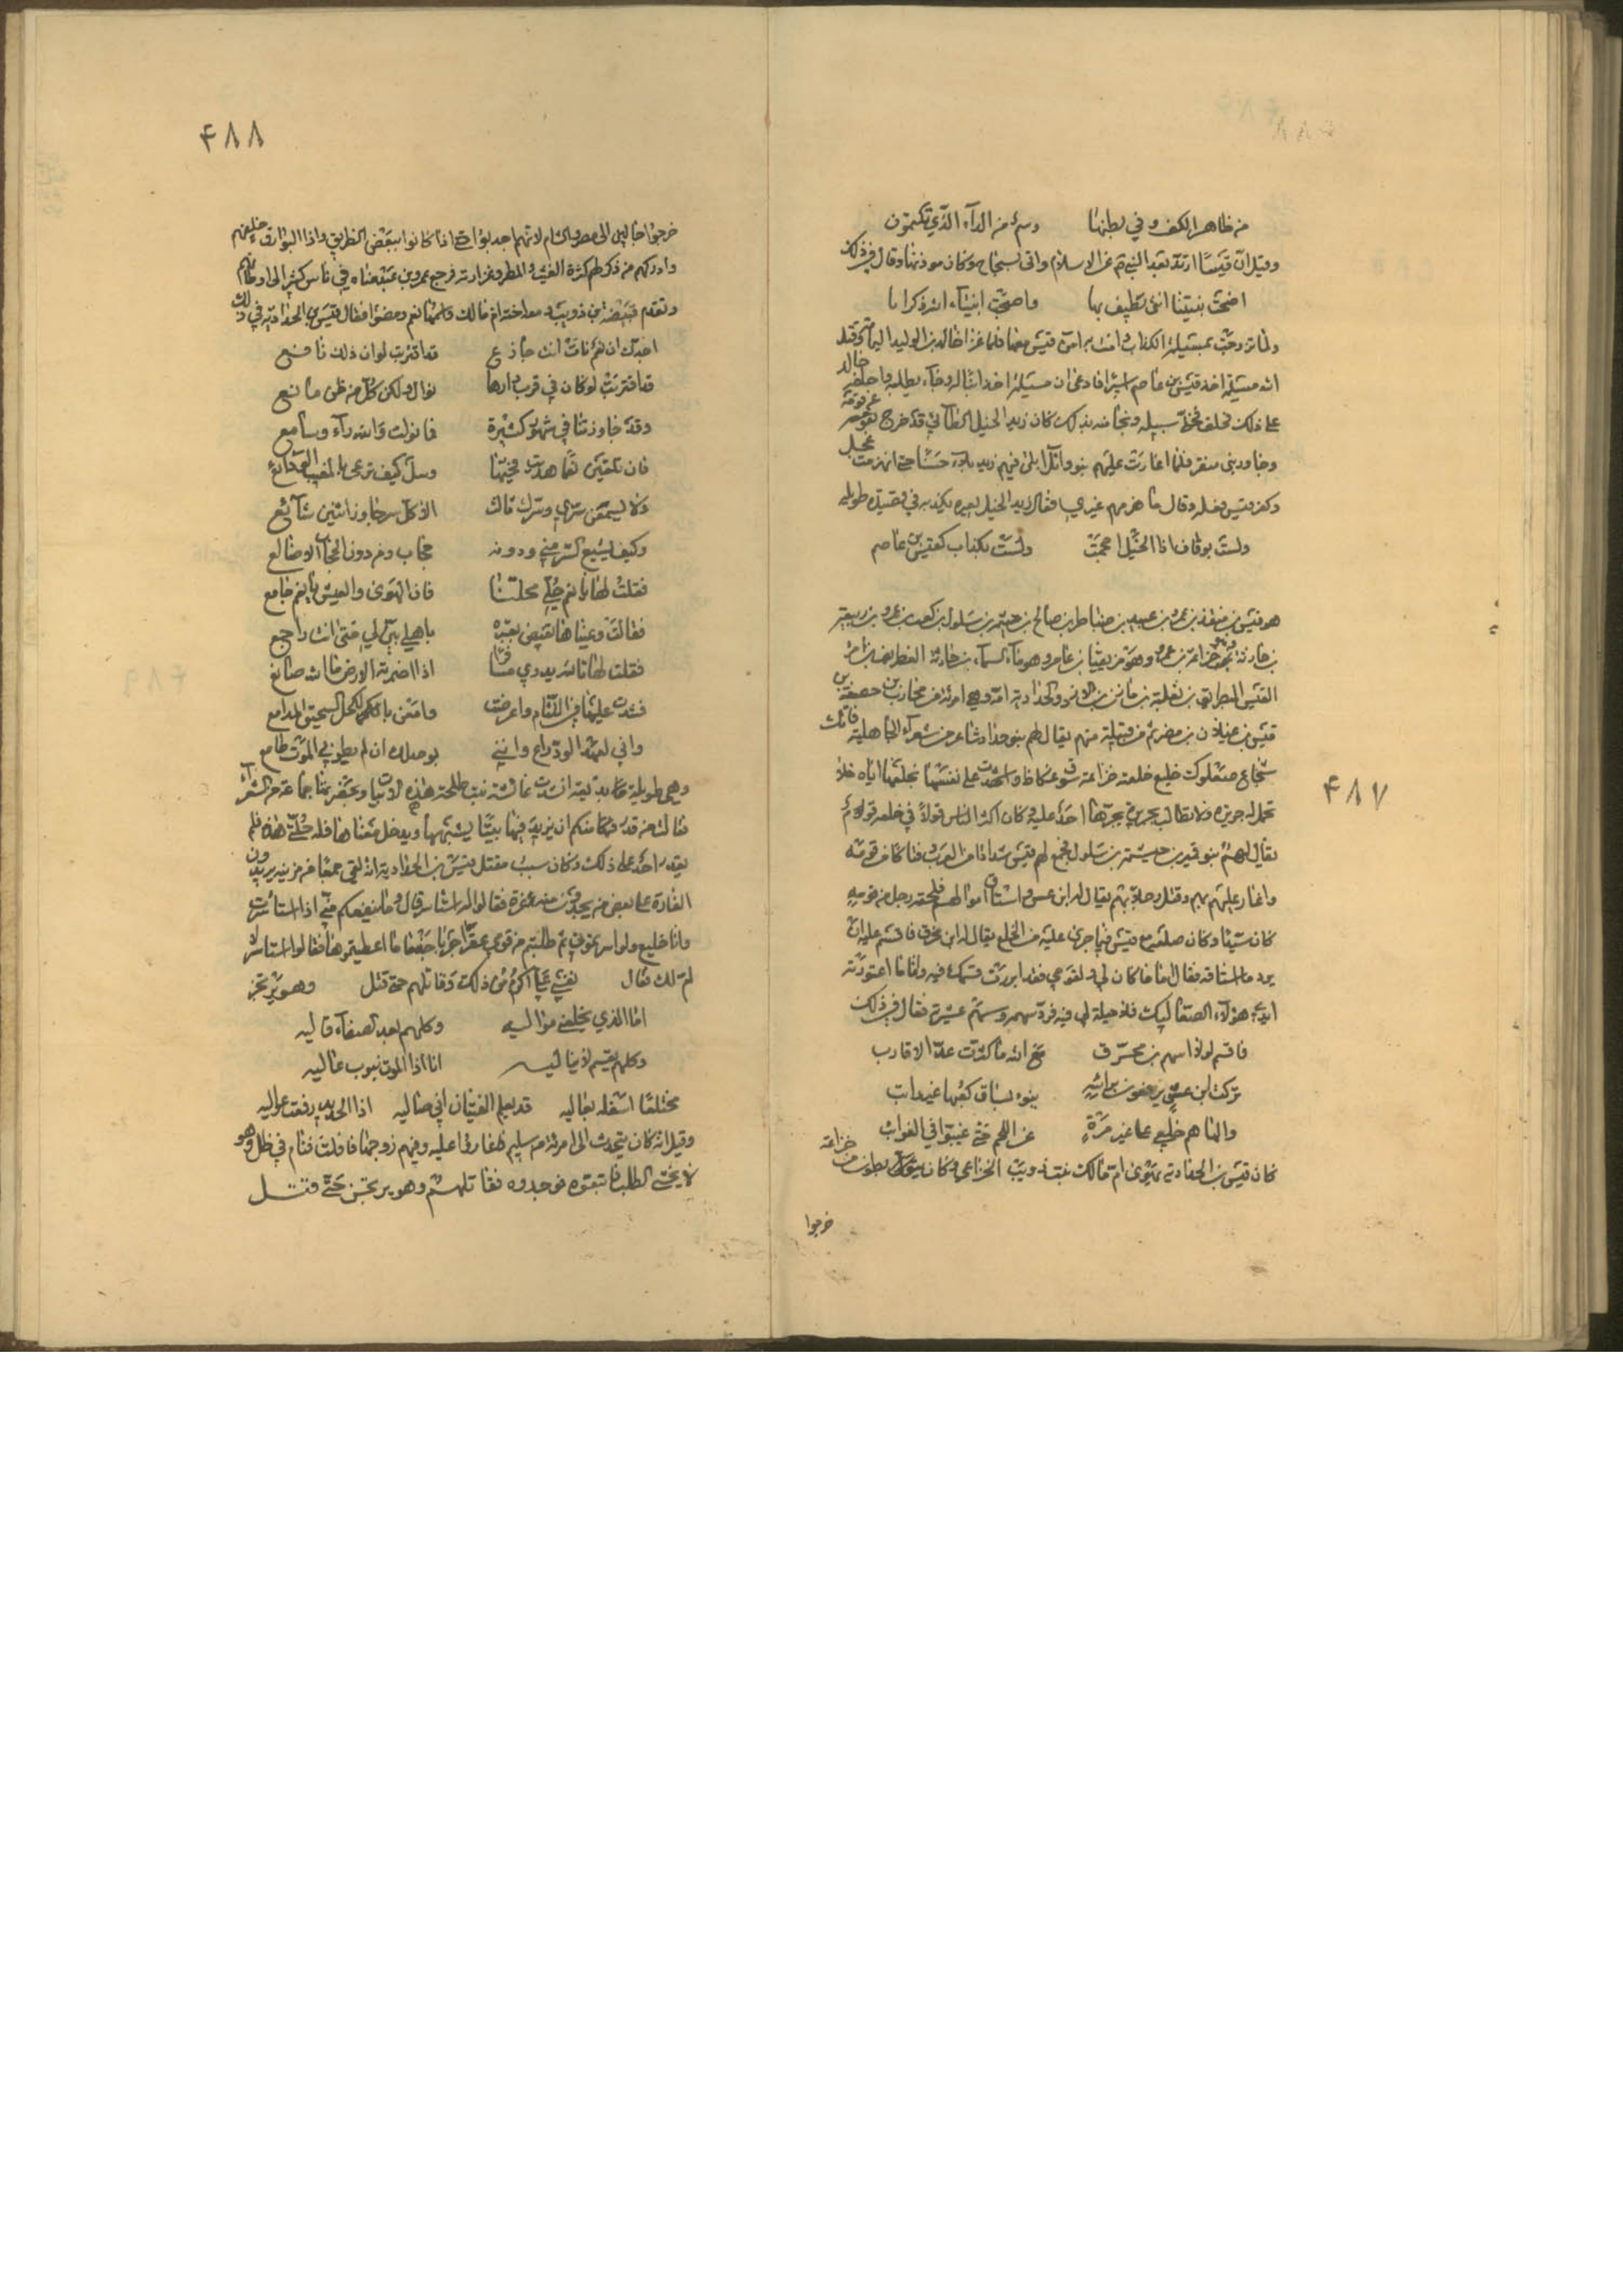 من ظاهر الكف وفي بطنها وسم من الداء الذي تكتمون
وقيل ان قيسا ارتد بعد النبي عن الاسلام واتى سجاح وكان موذنها وقال في ذلك
اضحت نبيتنا انثى نطيف بها واصبحت انبياء الله ذكرانا
ولما تزوجت بمسيلمة الكذاب وامنت به امن قيس معها فلما غزا خالد بن الوليد اليمامة وقتل
الله مسيلمة اخذ قيس بن عاصم اسيرا فادعى ان مسيلمة اخذ ابنا له وجاء يطلبه فاحلفه خالد
على ذلك فحلف فخلى سبيله ونجا منه بذلك كان زيد الخيل الطائي قد خرج عن قومه
وجاور بني منقر فلما اغارت عليهم بنو عجل وابلى فيهم زيد بلاء حسنا حتى انهزمت
وكفر قيس فعله وقال ما هزمهم غيري فقال زيد الخيل يعيره بكذبه في قصيدة طويلة
ولست بوقاف اذا الخيل احجمت ولست بكذاب كقيس بن عاصم
هو قيس بن منقذ بن عمرو بن عبيد بن ضياطر بن صالح بن حبشية بن سلول بن كعب بن عمرو بن ربيعة
بن حارثة خزاعة بن عمرو وهو مزيقيا بن عامر وهو ماء السماء بن حارثة الغطريف بن امرئ
القيس البطريق بن ثعلبة بن مازن بن الازد والحدادية امه وهي امرءة من محارب بن خصفة بن
قيس بن عيلان بن مضر ثم من قبيلة منهم يقال لهم بنو حداد شاعر من شعراء الجاهلية فاتك
شجاع صعلوك خليع خلعته خزاعة بسوق عكاظ واشهدت على نفسها بخلعها اياه فلا
تحمل له جريرة ولا تطالب بجريرة يجرها احد عليه كان اكثر الناس قولا في خلعه قوم
يقال لهم بنو قمير بن حبشية بن سلول فجمع لهم قيس شذاذا من العرب وفتاكا من قومه
واغار عليهم بهم وقتل رجلا منهم يقال له ابن عش واستاق اموالهم فلحقه رجل من قومه
كان سيدا وكان ضلعه مع قيس فيما جرى عليه من الخلع يقال له ابن محرق فاقسم عليه ان
يرد ما استاقه فقال اما ما كان لي ولقومي فقد ابررت قسمك فيه واما ما اعتورته
ايدي هولاء الصعاليك فلا حيلة لي فيه فرد سهمه وسهم عشيرته فقال في ذلك
فاقسم لولا اسهم بن محرق مع الله ما كثرت عد الاقارب
تركت ابن عش يرفعون براسه ينوء بساق كعبها غير راتب
وانهاهم خليع على غير مرة عن اللحم حتى غيبوا في الغوائب
كان قيس بن الحدادية يهوى ام مالك بنت ذويب الخزاعي وكان بطون من خزاعة
خرجوا
خرجوا جالين الى مصر والشام لانهم اجدبوا حتى اذا كانوا ببعض الطريق واذا البوارق خلفهم
وادركهم من ذكر لهم كثرة الغيث والمطر وغزارته فرجع عمرو بن عبد مناه في ناس كثير الى اوطانهم
وتقدم قبيصة بن ذويب معه اخته ام مالك واسمها نعم ومضوا فقال قيس بن الحدادية في ذلك
اجدك ان نعم نات انت جازع قد اقتربت لو ان ذلك نافع
قد اقتربت لو كان في قرب دارها نوال ولكن كل من ظن مانع
وقد جاورتنا في شهور كثيرة فما نولت والله راء وسامع
فان تلقين نعما هديت فحيها وسل كيف ترعى بالمغيب الودائع
ولا يسمعن سري وسرك ثالث الا كل سر جاوز اثنين شائع
وكيف يشيع السر مني ودونه حجاب ومن دون الحجاب الاضالع
فقلت لها يا نعم حلي محلنا فان الهوى والعيش يا نعم جامع
فقالت وعيناها تفيضان عبرة باهلي بين لي متى انت راجع
فقلت لها تالله يدري مسافر اذا اضمرته الارض ما الله صانع
فشدت على فيها اللثام واعرضت وامعن بالكحل السحيق المدامع
واني لعهد الود راع وانني بوصلك ان لم يطوني الموت طامع
وهي طويلة انشدت عائشة بنت طلحة هذه الابيات وبحضرتها جماعة من الشعراء
فقالت من قدر منكم ان يزيد فيها بيتا يشبهها ويدخل معناها فله حلتي هذه فلم
يقدر احد على ذلك وكان سبب مقتل قيس بن الحدادية انه لقي جمعا من مزينة يريدون
الغارة على بعض من يجدون منه غرة فقالوا له استاسر قال وما ينفعكم مني اذا استاسرت
وانا خليع ولو اسرتموني ثم طلبتم من قومي عنزا جرباء ما اعطيتموها فقالوا استاسر لا
ام لك فقال نفسي علي اكرم من ذلك وقاتلهم حتى قتل وهو يرتجز
انا الذي يخلعني مواليه وكلهم بعد الصفاء قاليه
وكلهم يقسم لا يباليه انا اذا الموت ينوب غاليه
مختلطا اسفله بعاليه قد يعلم الفتيان اني صاليه اذا الحديد رفعت عواليه
وقيل انه كان يتحدث الى امرءة من سليم فاغاروا عليه وفيهم زوجها فافلت فنام في ظل وهو
لا يخشى الطلب فاتبعوه فوجدوه فقاتلهم وهو يرتجز حتى قتل
٤٨٧
٤٨٨